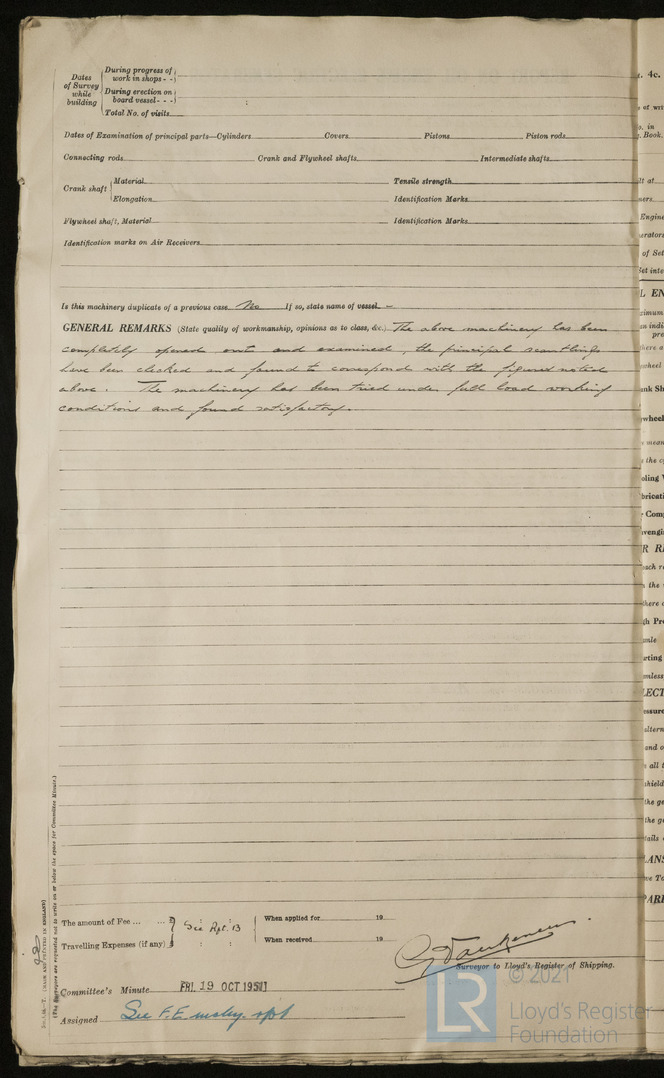 Dates of Survey while building
During progress of work in shops - -
During erection on board vessel - - -
Total No. of visits
Dates of Examination of principal parts—Cylinders Covers Pistons Piston rods
Connecting rods Crank and Flywheel shafts Intermediate shafts
Crank shaft Material Tensile strength
Elongation Identification Marks
Flywheel shaft, Material Identification Marks
Identification marks on Air Receivers
Is this machinery duplicate of a previous case No If so, state name of vessel -
GENERAL REMARKS (State quality of workmanship, opinions as to class, &c. The above machinery has been
completely opened out and examined, the principal scantlings
have been checked and found to correspond with the figures noted
above. The machinery has been tried under full load working
conditions and found satisfactory.
The amount of Fee ... ... See Rpt. 13 When applied for 19
Travelling Expenses (if any) When received 19
Surveyor to Lloyd's Register of Shipping.
Committee's Minute FRI. 19 OCT 1951
Assigned See F.E. mchy. rpt
(The Surveyors are requested not to write on or below the space for Committee Minute.)
© 2021
LR
Lloyd's Register
Foundation